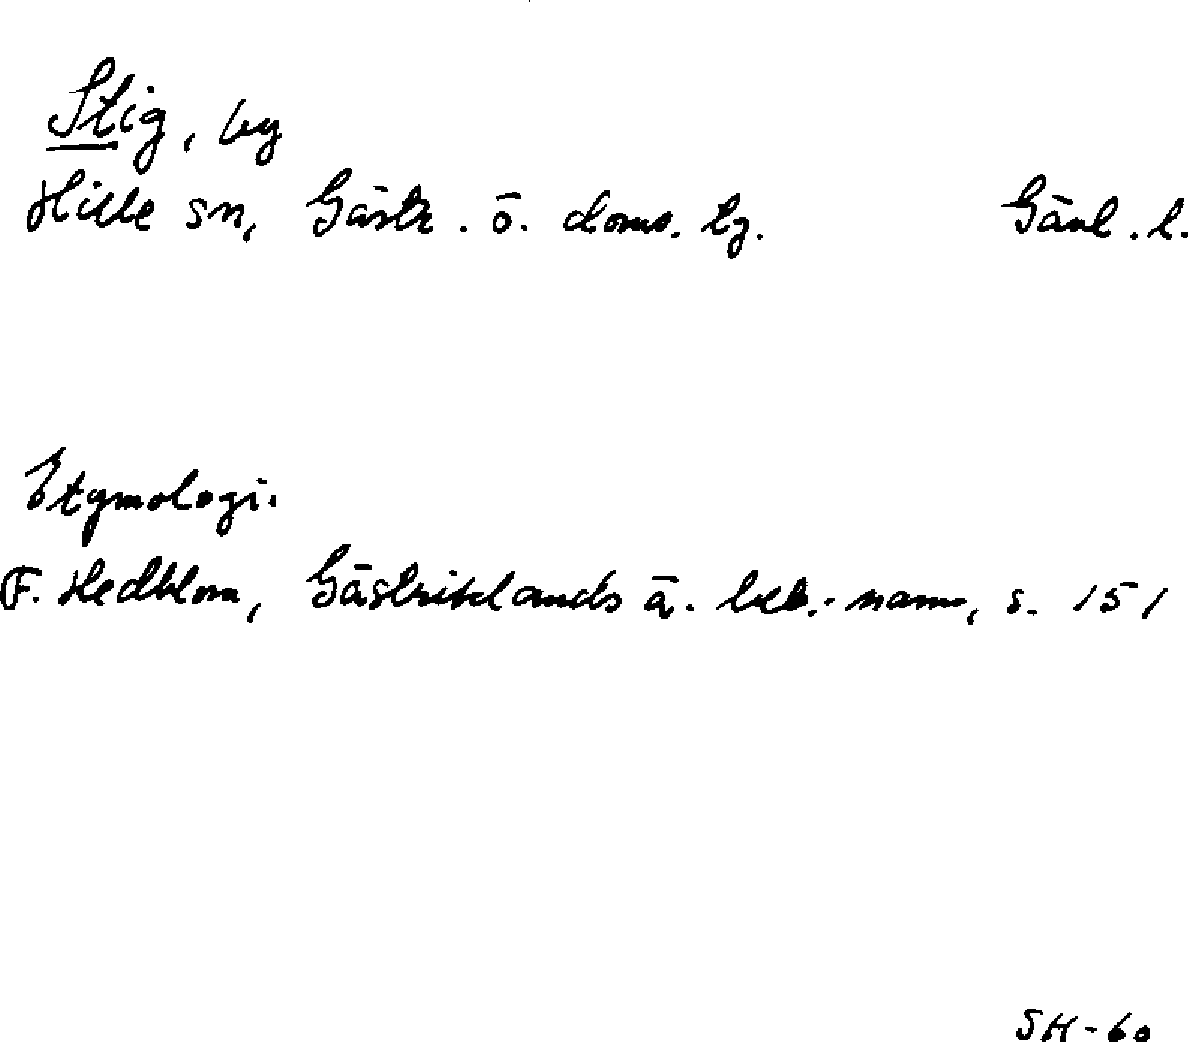 Stig, by
Hille sn, Gästr. ö. doms. tg. Gävl. l.
Etymologi.
F. Hedblom, Gästriklands ä. beb.-namn, s. 151
SH-60